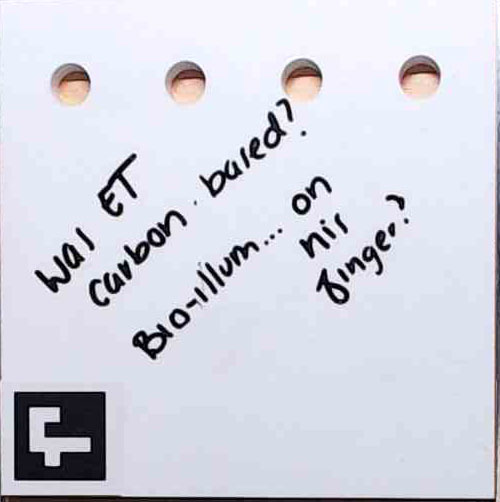 Was ET
carbon. based?
Bio-illum... on
his
finger?